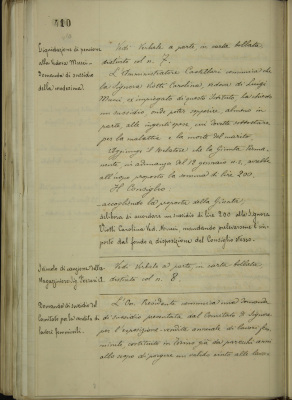 510
Liquidazione di pensione
alla Vedova Monni.
Domanda di sussidio
della medesima.
Vedi Verbale a parte, in carta bollata,
distinto col n. 7.
L'Amministratore Castellani comunica che
la Signora Viotti Carolina, vedova di Luigi
Monni ex impiegato di questo Istituto, ha chiesto
un sussidio onde poter sopperire, almeno in
parte, alle ingenti spese, cui dovette sottostare
per la malattia e la morte del marito.
Aggiunge il medesimo che la Giunta Perma-
nente in adunanza del 12 gennaio u.s., avrebbe
all'uopo proposto la somma di lire 200.
Il Consiglio
accogliendo la proposta della Giunta,
delibera di accordare un sussidio di lire 200 alla Signora
Viotti Carolina Ved. Monni, mandando prelevarsene l'im-
porto dal fondo a disposizione del Consiglio stesso.
Svincolo di cauzione
Magazziniere Sig.
Vedi Verbale a parte, in carta bollata,
distinto col n. 8.
Domanda di sussidio del
Comitato per la vendita di
lavori femminili.
Il Con. Presidente comunica una domanda
di sussidio presentata dal Comitato di Signore
per l'esposizione-vendita annuale di lavori fem-
minili costituito in Torino già da parecchi anni
allo scopo di porgere un valido aiuto alle donne